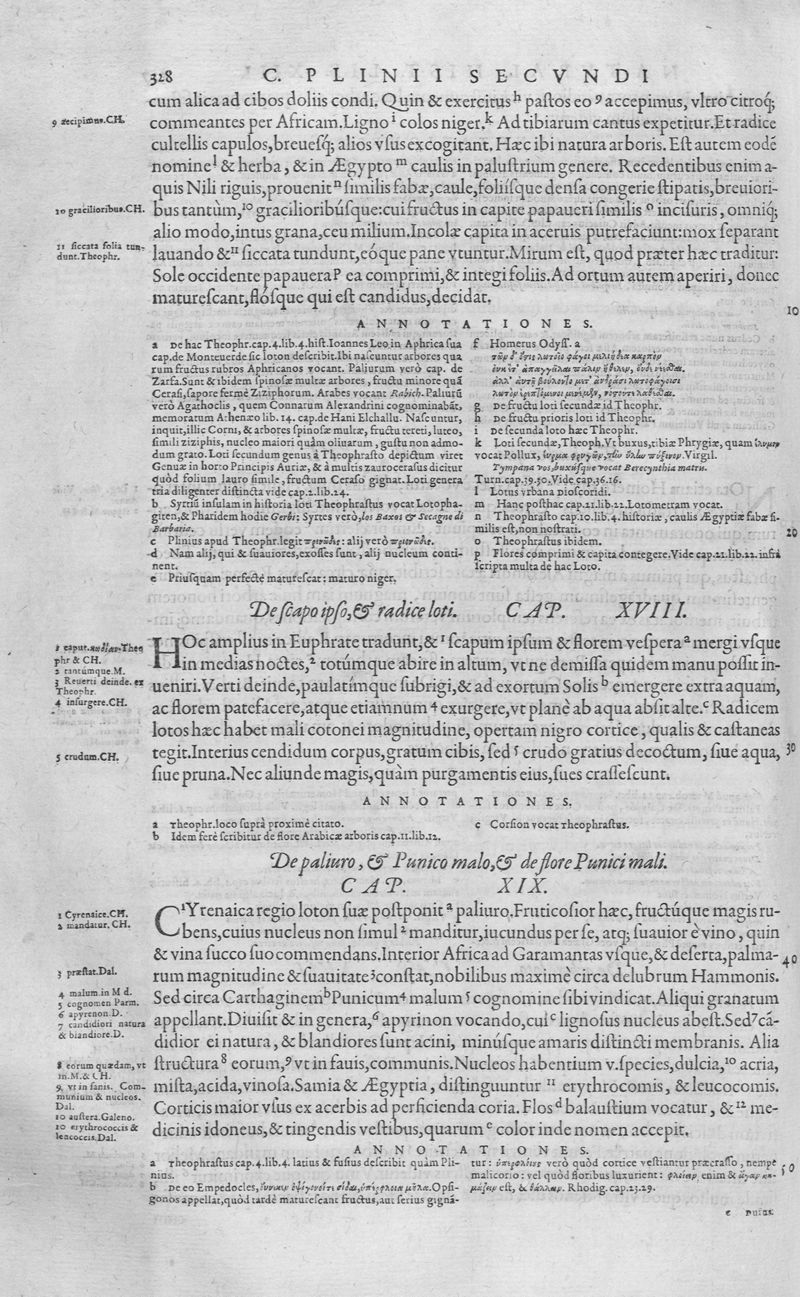 328 C. PLINII SECVNDI
cum alica ad cibos doliis condi. Quin & exercitus h pastos eo 9 accepimus, vltro citroq;
9 accipimus. CH.
commeantes per Africam. Ligno i colos niger. k Ad tibiarum cantus expetitur. Et radice
cultellis capulos, breuesq; alios vsus excogitant. Hæc ibi natura arboris. Est autem eodē
nomine l & herba, & in Ægypto m caulis in palustrium genere. Recedentibus enim a-
quis Nili riguis, prouenit n similis fabæ, caule, foliisque densa congerie stipatis, breuiori-
10 gracilioribus. CH.
bus tantùm, 10 gracilioribúsque: cui fructus in capite papaueri similis o incisuris, omniq;
alio modo, intus grana, ceu milium. Incolæ capita in aceruis putrefaciunt: mox separant
11 siccata folia tun-
dunt. Theophr.
lauando & 11 siccata tundunt, eóque pane vtuntur. Mirum est, quod præter hæc traditur:
Sole occidente papauera p ea comprimi, & integi foliis. Ad ortum autem aperiri, donec
maturescant, flósque qui est candidus, decidat.
10
ANNOTATIONES.
a De hac Theophr. cap. 4. lib. 4. hist. Ioannes Leo in Aphrica sua
cap. de Monteuerde sic loton describit. Ibi nascuntur arbores qua
rum fructus rubros Aphricanos vocant. Paliurum verò cap. de
Zarfa. Sunt & ibidem spinosæ multæ arbores, fructu minore quā
Cerasi, sapore fermè Ziziphorum. Arabes vocant Rabich. Paliurū
verò Agathoclis, quem Connarum Alexandrini cognominabāt,
memoratum Athenæo lib. 14. cap. de Hani Elchallu. Nascuntur,
inquit, illic Corni, & arbores spinosæ multæ, fructu tereti, luteo,
simili ziziphis, nucleo maiori quàm oliuarum, gustu non admo-
dum grato. Loti secundum genus à Theophrasto depictum viret
Genuæ in horto Principis Auriæ, & à multis zaurocerasus dicitur
quòd folium lauro simile, fructum Ceraso gignat. Loti genera
tria diligenter distincta vide cap. 2. lib. 24.
b Syrtiū insulam in historia loti Theophrastus vocat Lotopha-
giten, & Pharidem hodie Gerbi: Syrtes verò, los Baxos & Secagne di
Barbaria.
c Plinius apud Theophr. legit πριονῶδης: alij verò
d Nam alij, qui & suauiores, exosses sunt, alij nucleum conti-
nent.
e Priusquam perfectè maturescat: maturo niger.
f Homerus Odyss. a
g De fructu loti secundæ id Theophr.
h De fructu prioris loti id Theophr.
i De secunda loto hæc Theophr.
k Loti secundæ, Theoph. Vt buxus, tibiæ Phrygiæ, quam
vocat Pollux, Virgil.
Tympana vos, buxúsque vocat Berecynthia matris.
Turn. cap. 39. 30. Vide cap. 36. 16.
l Lotus vrbana Dioscoridi.
m Hanc posthac cap. 21. lib. 22. Lotometram vocat.
n Theophrasto cap. 10. lib. 4. historiæ, caulis Ægyptiæ fabæ si-
milis est, non nostrati.
20
o Theophrastus ibidem.
p Flores comprimi & capita contegere. Vide cap. 21. lib. 22. infrà
scripta multa de hac Loto.
De scapo ipso, & radice loti. CAP. XVIII.
1 caput. κωδίαν. Theo
phr & CH.
2 tantúmque. M.
3 Reuerti deinde. ex
Theophr.
4 insurgere. CH.
HOc amplius in Euphrate tradunt, & 1 scapum ipsum & florem vespera a mergi vsque
in medias noctes, 2 totúmque abire in altum, vt ne demissa quidem manu possit in-
ueniri. Verti deinde, paulatímque subrigi, & ad exortum Solis b emergere extra aquam,
ac florem patefacere, atque etiamnum 4 exurgere, vt planè ab aqua absit alte. c Radicem
lotos hæc habet mali cotonei magnitudine, opertam nigro cortice, qualis & castaneas
5 crudum. CH.
tegit. Interius cendidum corpus, gratum cibis, sed 5 crudo gratius decoctum, siue aqua,
30
siue pruna. Nec aliunde magis, quàm purgamentis eius, sues crassescunt.
ANNOTATIONES.
a Theophr. loco suprà proximè citato.
b Idem ferè scribitur de flore Arabicæ arboris cap. 11. lib. 12.
c Corsion vocat Theophrastus.
De paliuro, & Punico malo, & de flore Punici mali.
CAP. XIX.
1 Cyrenaice. CH.
2 mandatur. CH.
C1Yrenaica regio loton suæ postponit a paliuro. Fruticosior hæc, fructúque magis ru-
bens, cuius nucleus non simul 2 manditur, iucundus per se, atq; suauior è vino, quin
& vina succo suo commendans. Interior Africa ad Garamantas vsque, & deserta, palma-
40
3 præstat. Dal.
rum magnitudine & suauitate 3 constat, nobilibus maximè circa delubrum Hammonis.
4 malum. in M d.
5 cognomen Parm.
6 apyrenon. D.
7 candidiori natura
& blandiore. D.
Sed circa Carthaginem b Punicum 4 malum 5 cognomine sibi vindicat. Aliqui granatum
appellant. Diuisit & in genera, 6 apyrinon vocando, cui c lignosus nucleus abest. Sed 7 cā-
didior ei natura, & blandiores sunt acini, minúsque amaris distincti membranis. Alia
8 eorum quædam, vt
in. M. & CH.
9. vt in fanis. Com-
munium & nucleos.
Dal.
10 austera. Galeno.
10 erythrococcis &
leucoccis. Dal.
structura 8 eorum, 9 vt in fauis, communis. Nucleos habentium v. species, dulcia, 10 acria,
mista, acida, vinosa. Samia & Ægyptia, distinguuntur 11 erythrocomis, & leucocomis.
Corticis maior vsus ex acerbis ad perficienda coria. Flos d balaustium vocatur, & 12 me-
dicinis idoneus, & tingendis vestibus, quarum e color inde nomen accepit.
ANNOTATIONES.
a Theophrastus cap. 4. lib. 4. latius & fusius describit quàm Pli-
nius.
b De eo Empedocles, Opsi-
gonos appellat, quòd tardè maturescant fructus, aut serius gignā-
tur: verò quòd cortice vestiantur præcrasso, nempe
50
malicorio: vel quòd floribus luxurient: enim &
est, & Rhodig. cap. 23. 29.
c